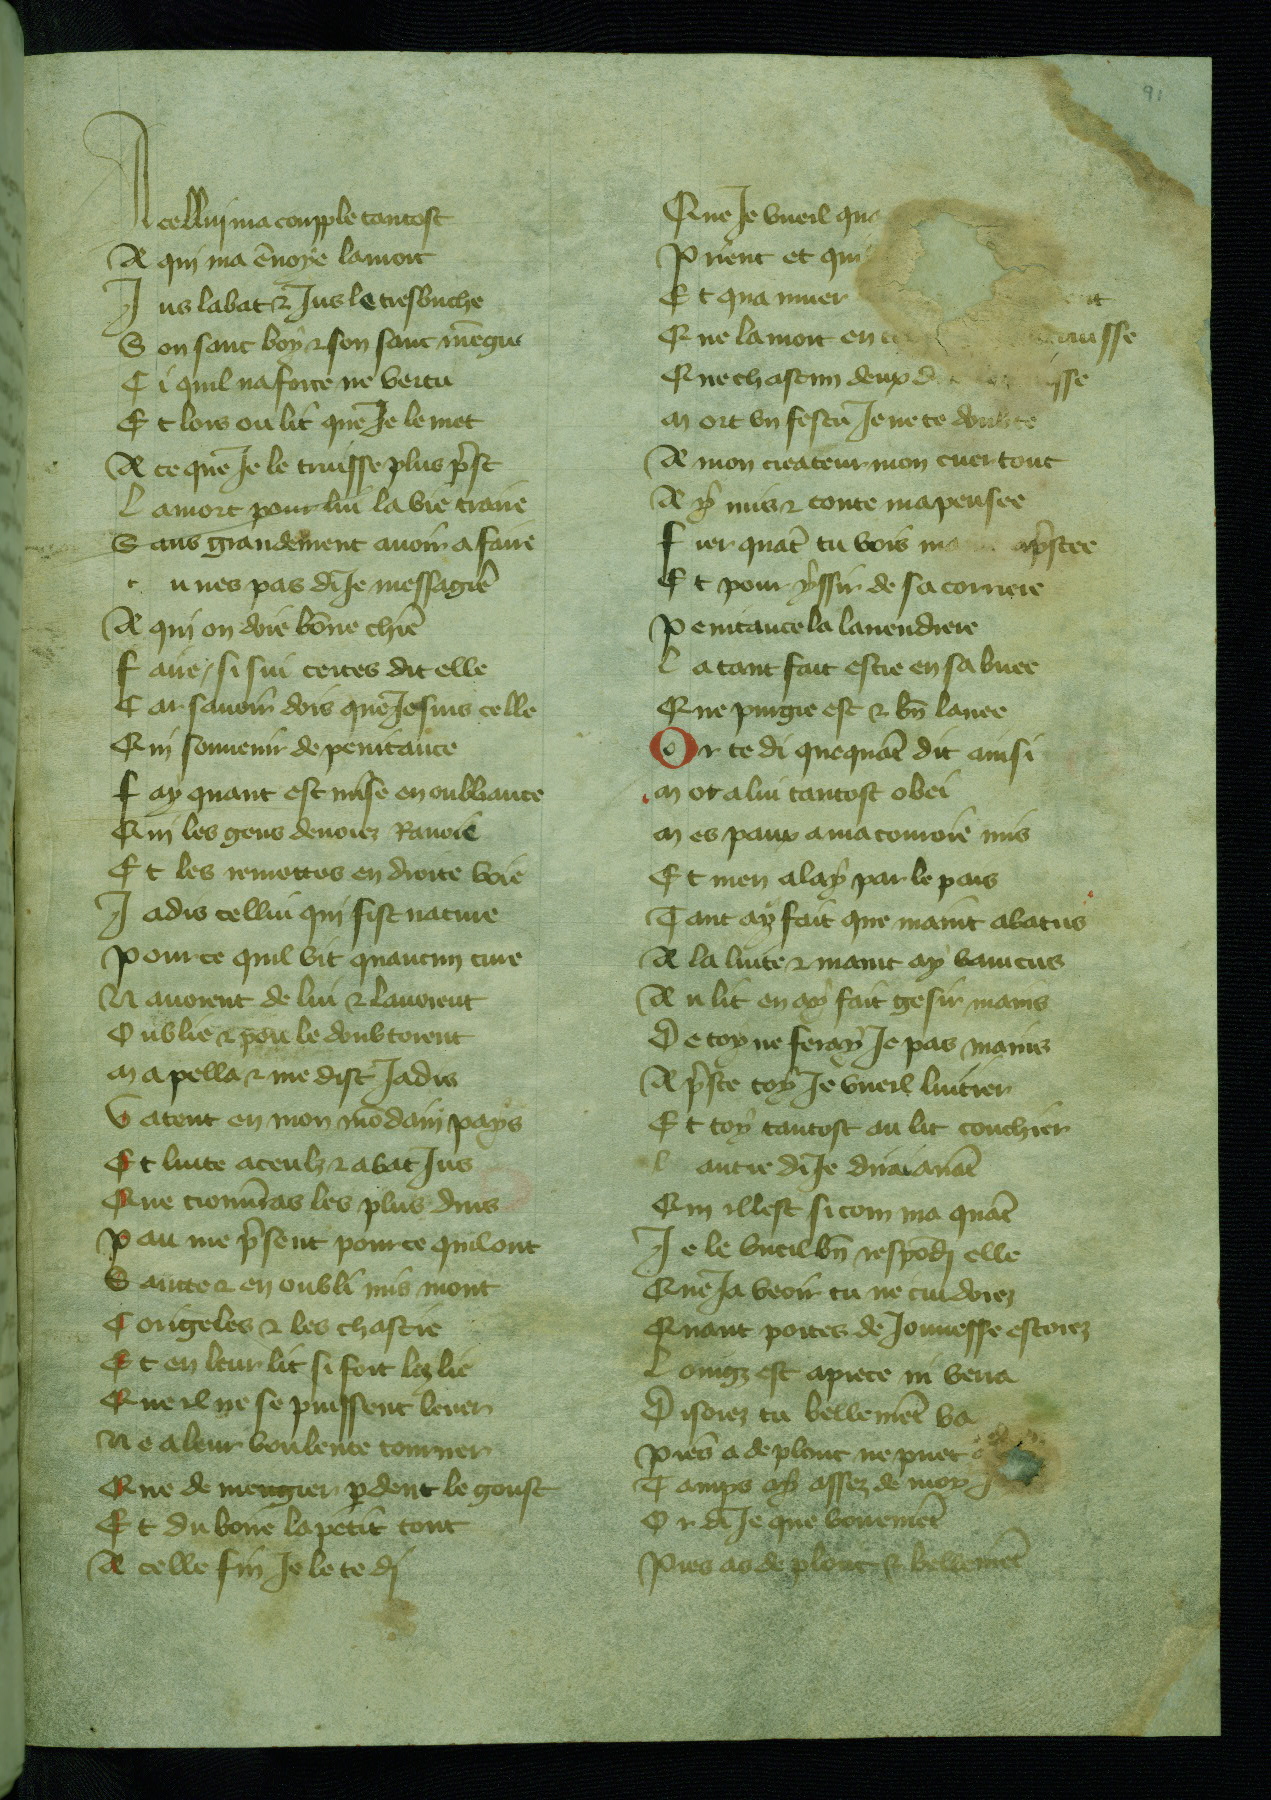 91
A cellui ma coupple tantost
A qui ma ēuoye la mort
Jus labat ⁊ Jus le tresbuche
Son sanc boy ⁊ son sanc mēgue
Ci quil na force ne vertu
Et lors ou lit que Je le met
A ce que Je le truisse plus pr̄st
La mort pour lui la vie traire
Sans grandement auoir a faire
u nes pas di Je messagiē
A qui on doie bōne chiē
Faire / si sui certes dit elle
Car sauoir dois que Je suis celle
Qui souuenir de penitance
Fay quant est mise en oubliance
Qui les gens deuoiez Rauoie
Et les remettos en droite voie
Jadis cellui qui fist nature
Pour ce quil vit quaucun cure
Nauoient de lui ⁊ lauoient
Oublie ⁊ pou le doubtoient
Mapella ⁊ me dist Jadis
Vatent en mon mōdain pays
Et luite a ceulz ⁊ abat Jus
Que trouuēras les plus durs
Pau me pr̄sent pour ce quil ont
Sante ⁊ en oubli mis mont
Corigeles ⁊ les chastie
Et en leur lit si fort lez lie
Que il ne se puissent leuer
Ne a leur voulente tourner
Que de mengier p̱dent le goust
Et du boire la petit tout
A celle fin Je le te di
Que Je vueil
Prient et
Et qua muer
Que la mort en
Que chascun deux
Mort vn festu Je ne te doubte
A mon creatour mon cuer tout
Ay mis ⁊ toute ma pensee
Fier quāt tu vois apr̄stee
Et pour yssir de sa correie
Penitance la lauendiere
La tant fait estre en sa buee
Que purgie est ⁊ bn̄ lauee
Or te di que quāt dit ainsi
Mot a lui tantost obei
Mes paux a ma couroie mis
Et men alay par le pais
Tant ay fait que maint abatus
A la luite ⁊ maint ay vaincus
Au lit en ay fait gesir mains
De toy ne feray Je pas mains
A pr̄ste toy Je vueil luitier
Et toy tantost au lit couchier
autre di Je dirai auāt
Qui illest si com ma quāt
Je le vueil bn̄ respōdi elle
Que Ja veoir tu ne cuidoiez
Quant portes de Jonnesse estoiez
Loingz est a piece ni verra
Disoiez tu bellemēt va
Pies a de plonc ne puet
Tamps ay assez de moy
Or di Je que vouemēt
Pies as de plonc ⁊ bellemēt